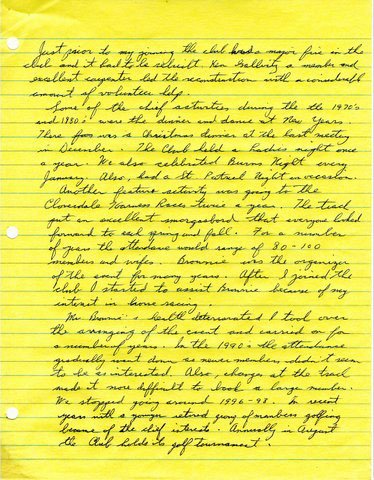 Just prior to my joining the club had a major fire in the
club and it had to be rebuilt. Ken a member and
excellent carpenter led the reconstruction with a considerable
amount of volunteer help.
Some of the chief activities during the the 1970's
and 1980's were the dinner and dance at New Years.
There was a Christmas dinner at the last meeting
in December. The Club held a Ladies night once
a year. We also celebrated Burns Night every
January. Also, had a St. Patrick Night on occasion.
Another feature activity was going to the
Cloverdale Harness Races twice a year. The track
put on excellent smorgasbord that everyone looked
forward to each spring and fall. For a number
of years the attendance would range of 80-100
members and wifes. Brownie was the organizer
of the event for many years. After I joined the
club I started to assist Brownie because of my
interest in horse racing.
When Brownie's health deteriorated I took over
the arranging of the event and carried on for
a number of years. In the 1990's the attendance
gradually went down as newer members didn't seem
to be as interested. Also, changes at the track
made it more difficult to book a large number.
We stopped going around 1996-98. In recent
years with a younger retired group of members golfing
became of the chief interests. Annually in August
the Club holds its golf tournament.